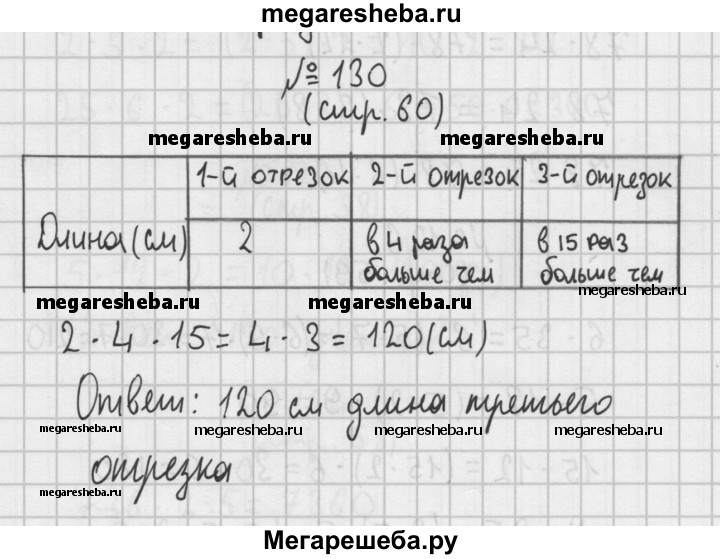 megaresheba.ru
№ 130
(стр. 60)
megaresheba.ru megaresheba.ru
1-й отрезок 2-й отрезок 3-й отрезок
Длина (см) 2 в 4 раза больше чем в 15 раз больше чем
megaresheba.ru
megaresheba.ru megaresheba.ru
2 · 4 · 15 = 4 · 3 = 120 (см)
Ответ: 120 см длина третьего
megaresheba.ru megaresheba.ru megaresheba.ru megaresheba.ru
отрезка
megaresheba.ru
Мегарешеба.ру